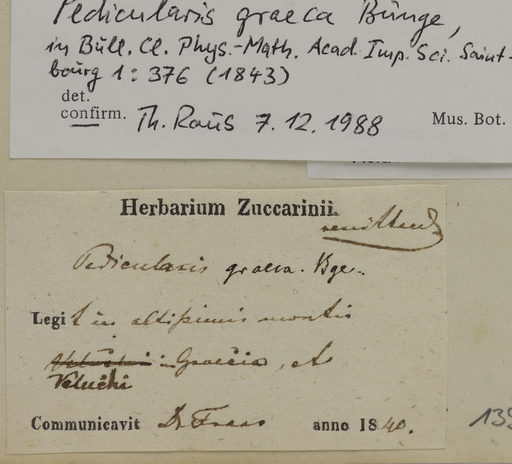 Pedicularis graeca Bunge,
in Bull. Cl. Phys.-Math. Acad. Imp. Sci. Saint-
bourg 1: 376 (1843)
det.
confirm. Th. Raus 7.12.1988 Mus. Bot.
Herbarium Zuccarinii.
Pedicularis graeca. Bge.
Legit in altissimis montis
Veluchi in Graecia, et
Veluchi
Communicavit Dr Fraas anno 1840.